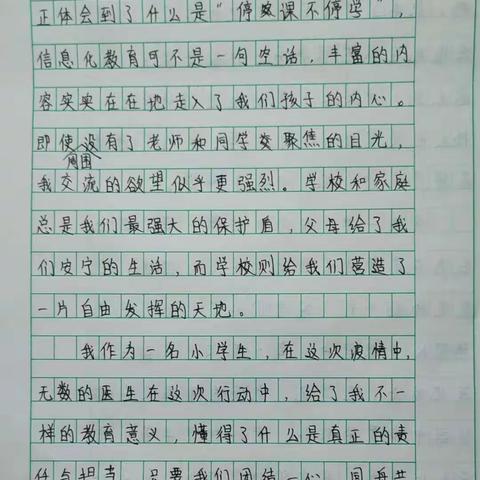 正体会到了什么是“停课不停学”，
信息化教育可不是一句空话，丰富的内
容实实在在地走入了我们孩子的内心。
即使没有了老师和同学类聚焦的目光，
周围
我交流的欲望似乎更强烈。学校和家庭
总是我们最强大的保护盾，父母给了我
们安宁的生活，而学校则给我们营造了
一片自由发挥的天地。
我作为一名小学生，在这次疫情中，
无数的医生在这次行动中，给了我不一
样的教育意义，懂得了什么是真正的责
任与担当。只要我们团结一心，同舟共